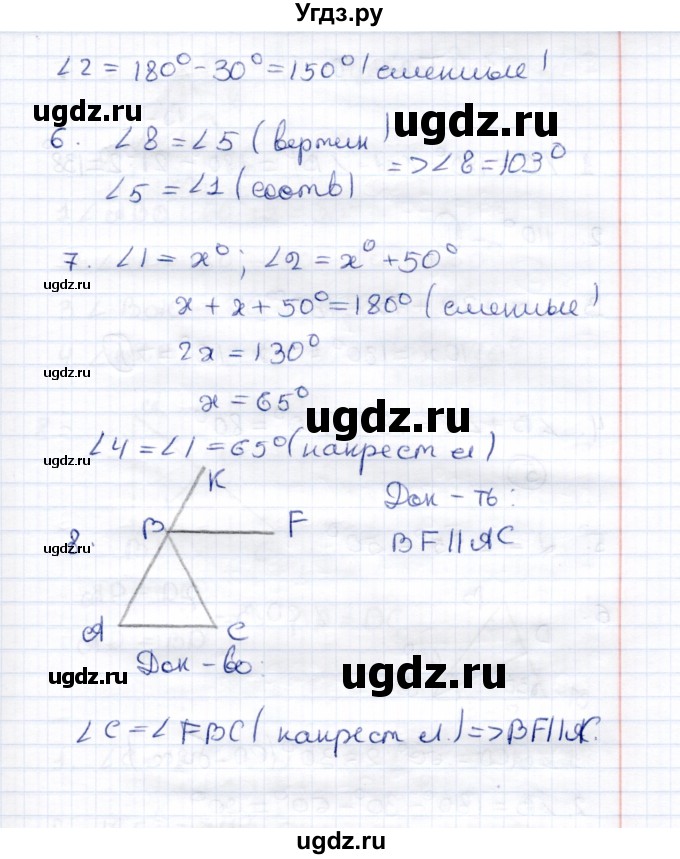 Угдз.ру
∠2 = 180° - 30° = 150° (смежные)
ugdz.ru
ugdz.ru
6. ∠8 = ∠5 (вертик)
∠5 = ∠1 (соотв) => ∠8 = 103°
7. ∠1 = x°; ∠2 = x° + 50°
ugdz.ru
x + x + 50° = 180° (смежные)
2x = 130°
ugdz.ru
x = 65°
ugdz.ru
∠4 = ∠1 = 65° (накрест л)
ugdz.ru
K
Док-ть:
8.
B
F
BF || AC
ugdz.ru
A
C
Док-во:
ugdz.ru
ugdz.ru
∠C = ∠FBC (накрест л.) => BF || AC.
ugdz.ru